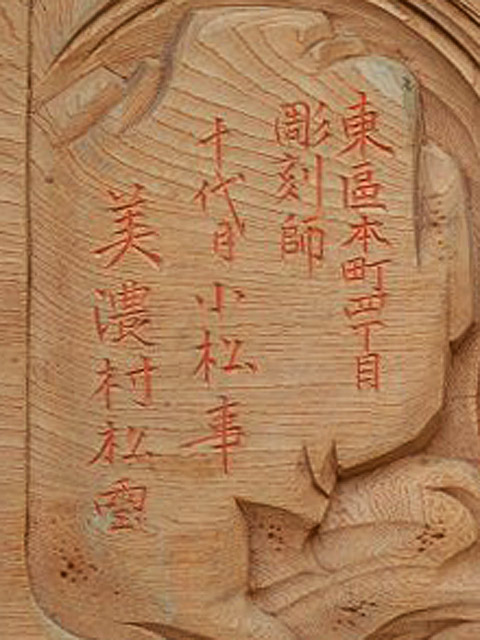 東區本町四丁目
彫刻師
十代目小松事
美濃村松雲